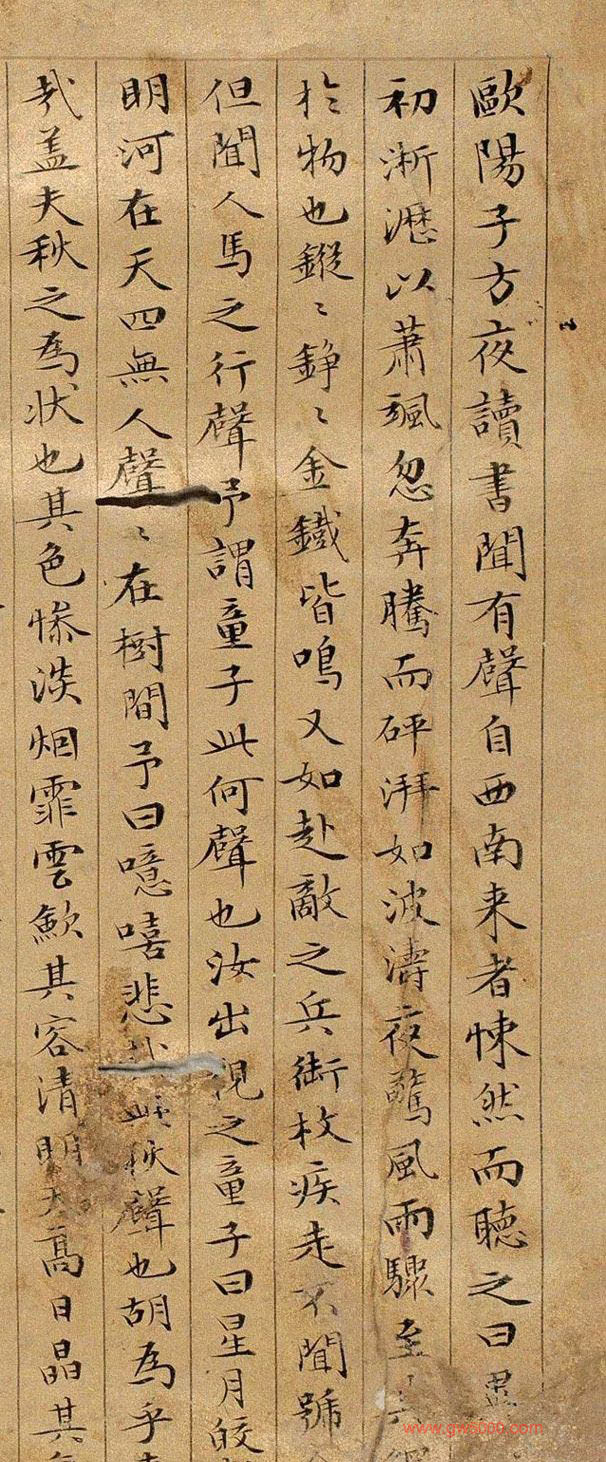 歐陽子方夜讀書聞有聲自西南来者悚然而聽之曰異
初淅瀝以蕭颯忽奔騰而砰湃如波濤夜驚風雨驟至其
扵物也鏦〻錚〻金鐵皆鳴又如赴敵之兵銜枚疾走不聞號
但聞人馬之行聲予謂童子此何聲也汝出視之童子曰星月皎
明河在天四無人聲〻在樹間予曰噫嘻悲哉此秋聲也胡為乎
㢤盖夫秋之為狀也其色惨淡烟霏雲歛其容清明天高日晶其
www.gw5000.com